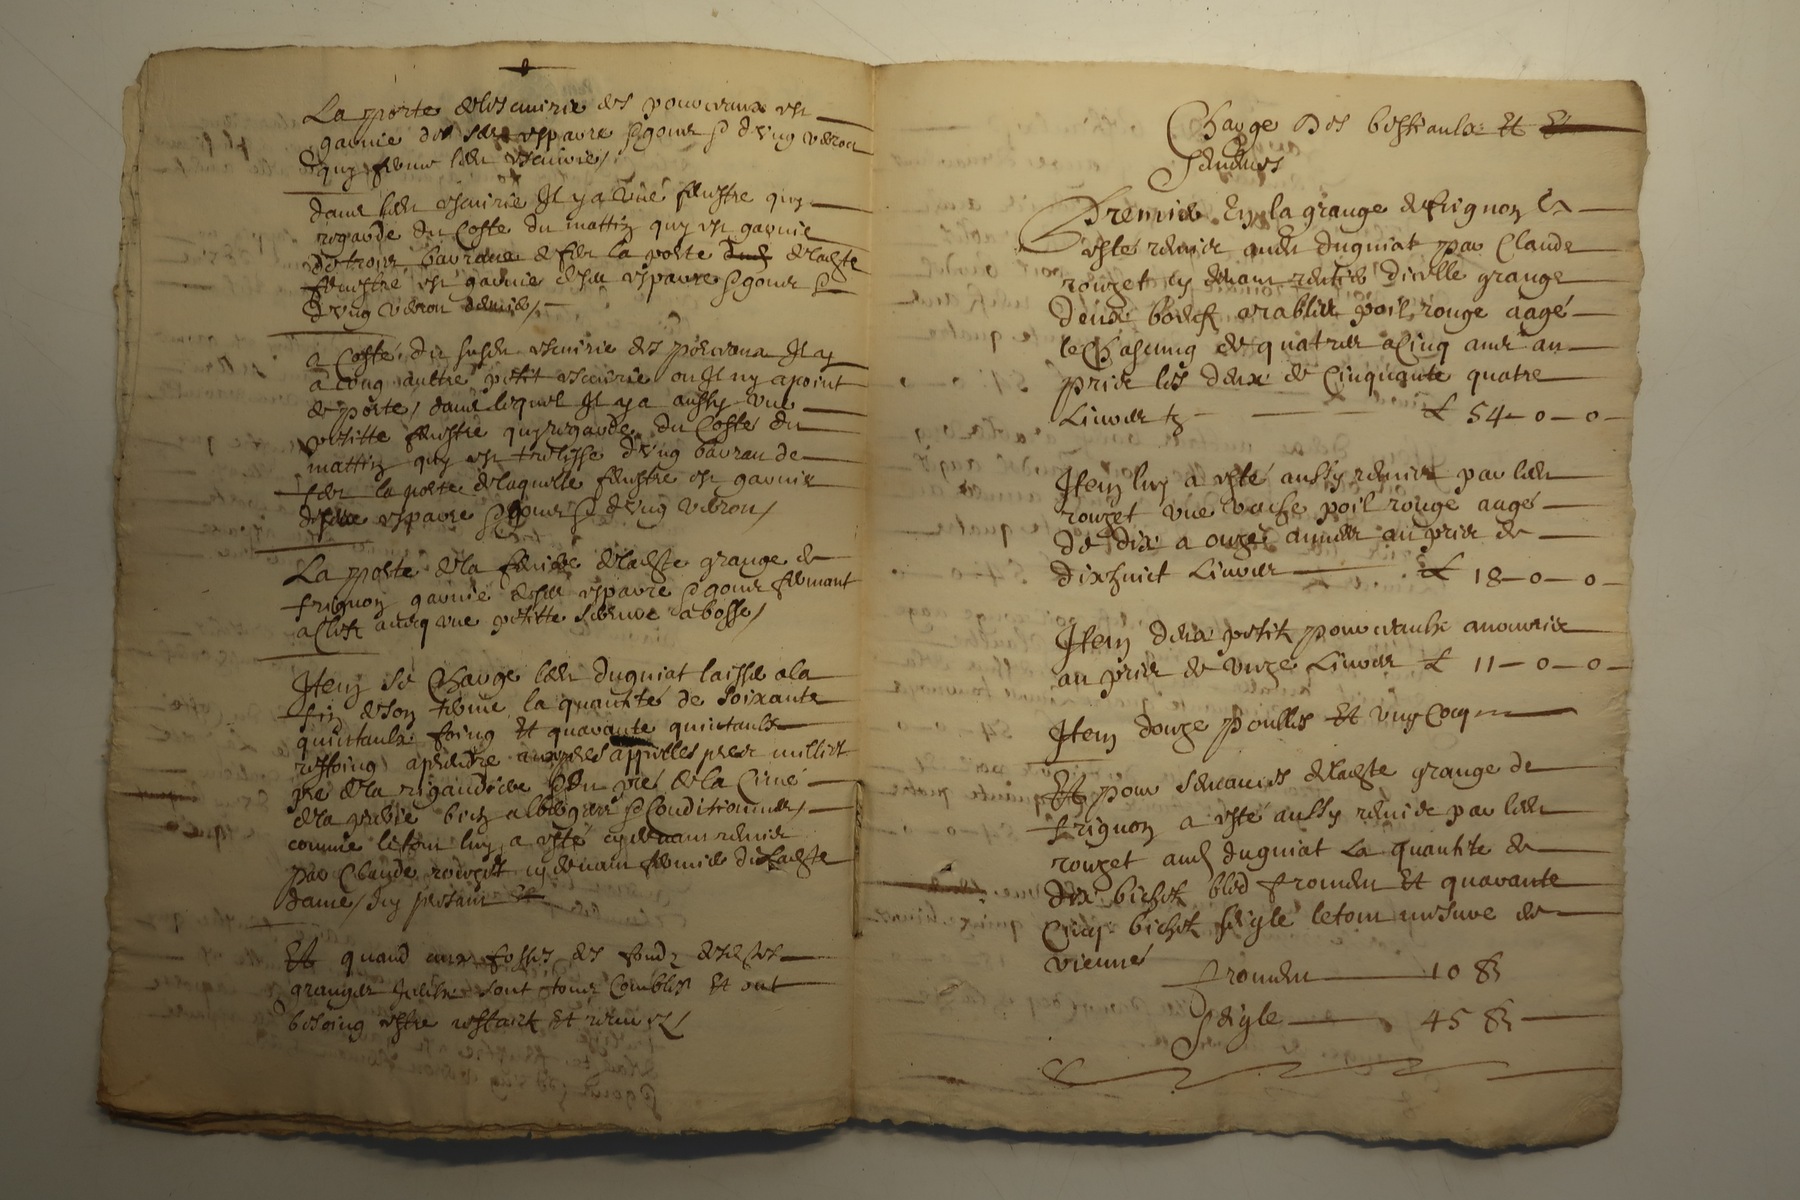 La porte de lescuirie des pourceaux est
garnie de ses esparre & gons & d'ung veroul
quy ferme led escuirie /
Dans led escuirie Il y a une fenestre quy
regarde du Costé du mattin quy est garnie
de trois barreaux de fer la porte de lade
fenestre est garnie de ses esparre & gons &
d'ung veroul
a Costé du susd escuirie des pourceaux Il y
a ung aultre petit escuirie ou Il ny a point
de porte / dans lequel Il y a aussy une
petitte fenestre quy regarde du Costé du
mattin quy est d'ung barreau de
fer la porte de laquelle fenestre est garnie
esparre & gons & d'ung veroul /
La porte de la de lade grange de
frignon garnie de ses esparre & gons fermant
a Clef avecq une petitte serrure a bosse /
Item se Charge led duguiat laisser a la
fin de son terme la quantité de soixante
quintaulx foing Et quarante quintaulx
a prendre appelles
pré de la du pré de la
de la bien & Conditionnes /
comme le tout luy a esté cydevant remis
par Claude rouzet cydevant fermier de lade
dame /
Et quand aux fosses des fondz desdes
granges sont tous Combles Et ont
besoing estre reffaict Et /
Charge des bestiaulx Et
semences
Premier En la grange de frignon
esté remis aud duguiat par Claude
rouzet cy devant rentier d'icelle grange
deux bœufz arables poil rouge aagé
le Chascung de quatre a Cinq ans au
prix les deux de Cinquante quatre
Livres tz £ 54-0-0
Item luy a esté aussy remis par led
rouzet une vache poil rouge aagé
de dix a onze annees au prix de
dixhuict Livres £ 18-0-0
Item deux petitz pourceaulx a nourrir
au prix de unze Livres £ 11-0-0
Item douze poulles Et ung Cocq
Et pour semances de lade grange de
frignon a esté aussy remis par led
rouzet aud duguiat La quantité de
dix bichetz bled froment Et quarante
Cinq bichetz seigle le tout mesure de
vienne
froment 10 B
Seigle 45 B